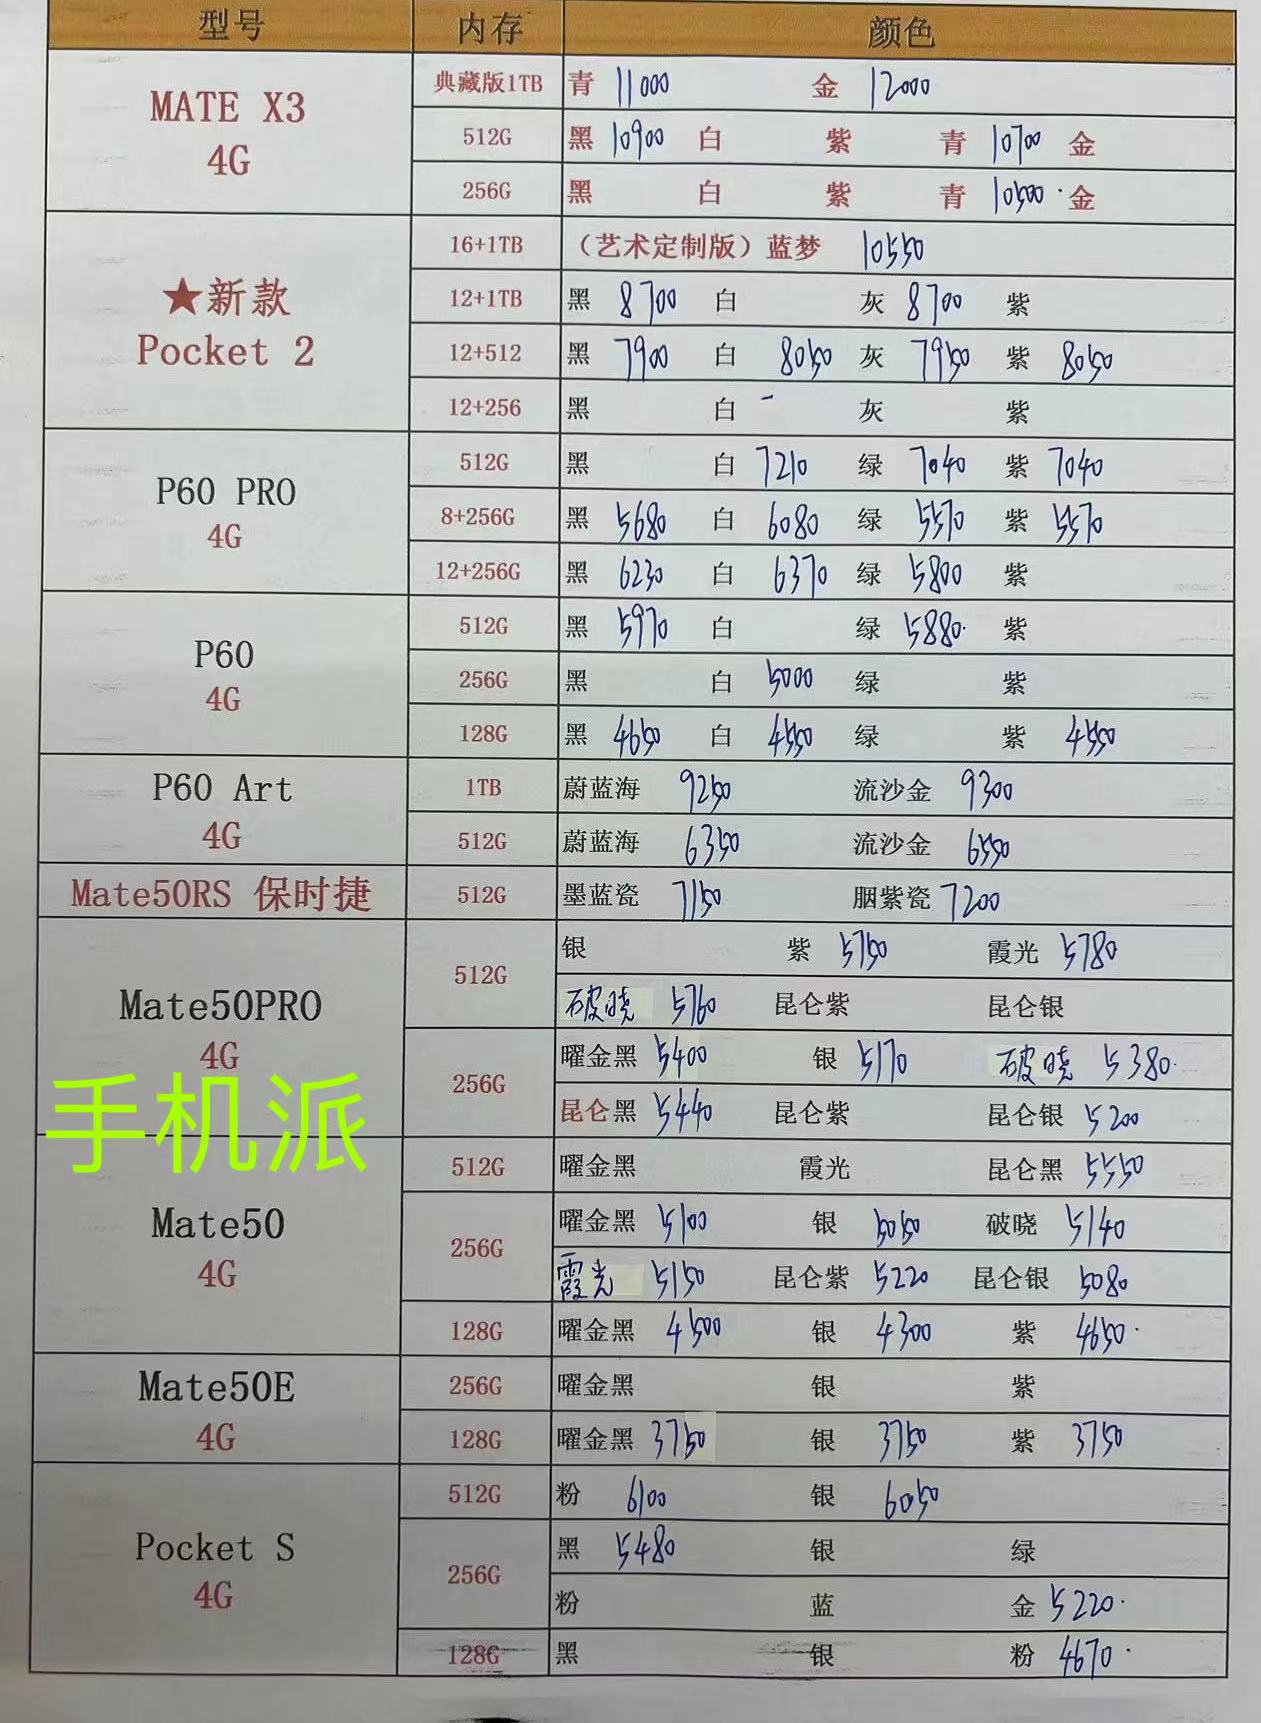 型号 内存 颜色
MATE X3
4G
典藏版1TB 青 11000 金 12000
512G 黑 10900 白 紫 青 10700 金
256G 黑 白 紫 青 10500 金
★新款
Pocket 2
16+1TB （艺术定制版）蓝梦 10550
12+1TB 黑 8700 白 灰 8700 紫
12+512 黑 7900 白 8050 灰 7950 紫 8050
12+256 黑 白 - 灰 紫
P60 PRO
4G
512G 黑 白 7210 绿 7040 紫 7040
8+256G 黑 5680 白 6080 绿 5570 紫 5570
12+256G 黑 6230 白 6370 绿 5800 紫
P60
4G
512G 黑 5970 白 绿 5880 紫
256G 黑 白 5000 绿 紫
128G 黑 4650 白 4550 绿 紫 4550
P60 Art
4G
1TB 蔚蓝海 9250 流沙金 9300
512G 蔚蓝海 6350 流沙金 6550
Mate50RS 保时捷 512G 墨蓝瓷 7150 胭紫瓷 7200
Mate50PRO
4G
512G 银 紫 5750 霞光 5780
破晓 5760 昆仑紫 昆仑银
256G 曜金黑 5400 银 5170 破晓 5380
昆仑黑 5440 昆仑紫 昆仑银 5200
手机派
Mate50
4G
512G 曜金黑 霞光 昆仑黑 5550
256G 曜金黑 5100 银 5050 破晓 5140
霞光 5150 昆仑紫 5220 昆仑银 5080
128G 曜金黑 4500 银 4300 紫 4650
Mate50E
4G
256G 曜金黑 银 紫
128G 曜金黑 3750 银 3750 紫 3750
Pocket S
4G
512G 粉 6100 银 6050
256G 黑 5480 银 绿
粉 蓝 金 5220
128G 黑 银 粉 4670